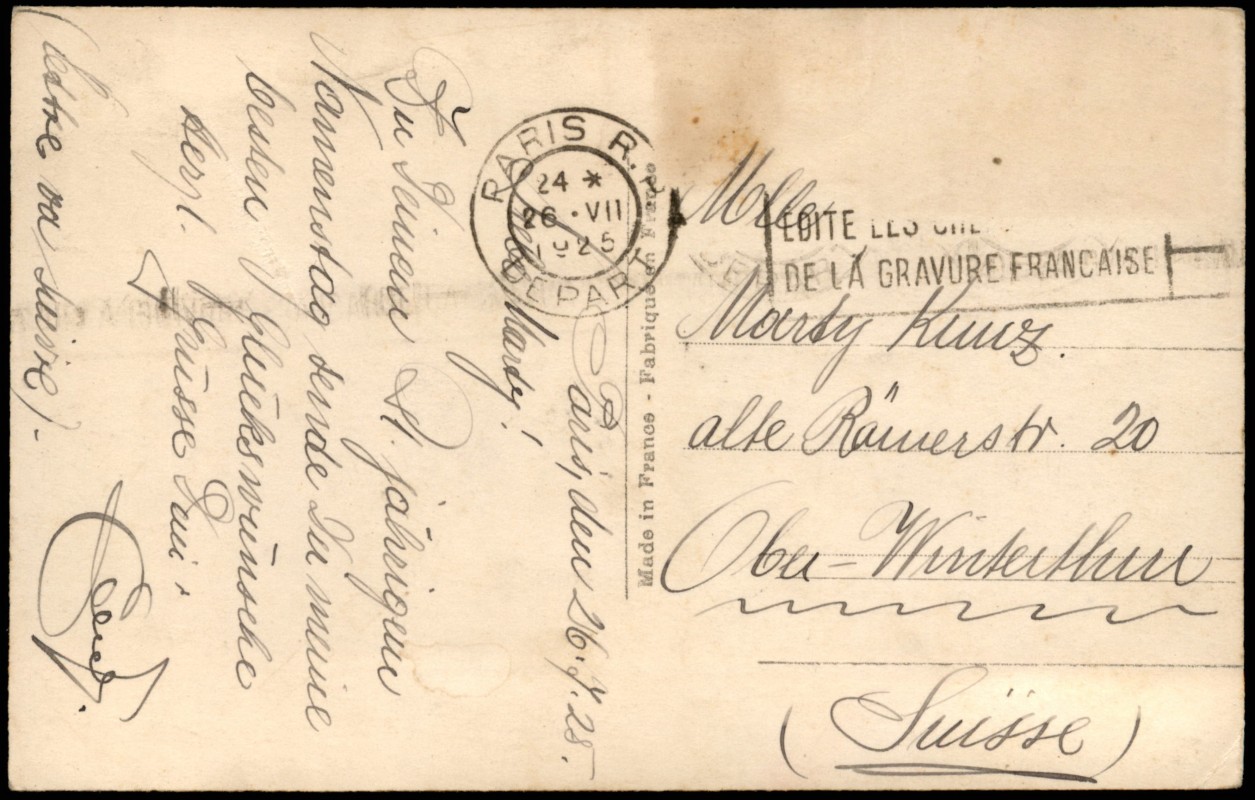 Paris, den 26.7.25.
Marty!
Zu Deinem 21. jährigen
Namenstag sende Dir meine
besten Glückswünsche
Herzl. Grüsse Dein
(lettre va suivre).
PARIS R.P.
24 *
26 · VII
1925
DEPART
Made in France - Fabriqué en France
EDITE LES CHE
DE LA GRAVURE FRANCAISE
Mlle
Marty Kunz.
alte Römerstr. 20
Ober-Winterthur
(Suisse)